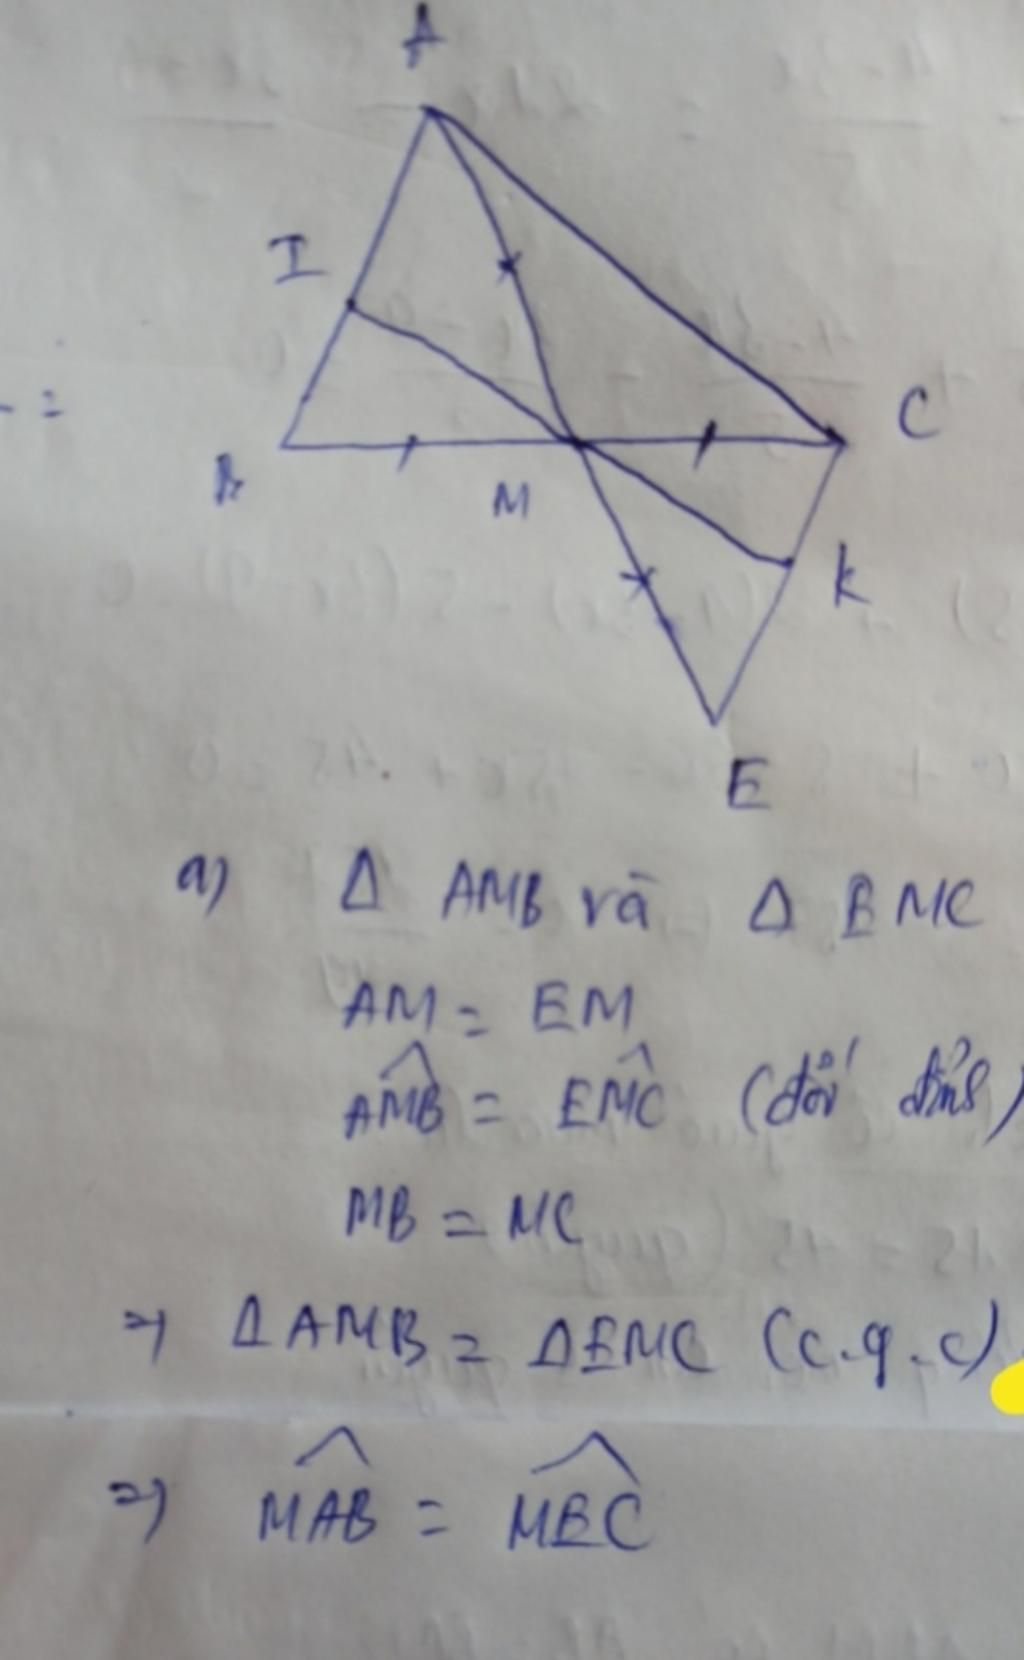 A
I
C
B
M
K
E
a) Δ AMB và Δ EMC
AM = EM
\widehat{AMB} = \widehat{EMC} (đối đỉnh)
MB = MC
=> ΔAMB = ΔEMC (c.g.c)
=> \widehat{MAB} = \widehat{MEC}